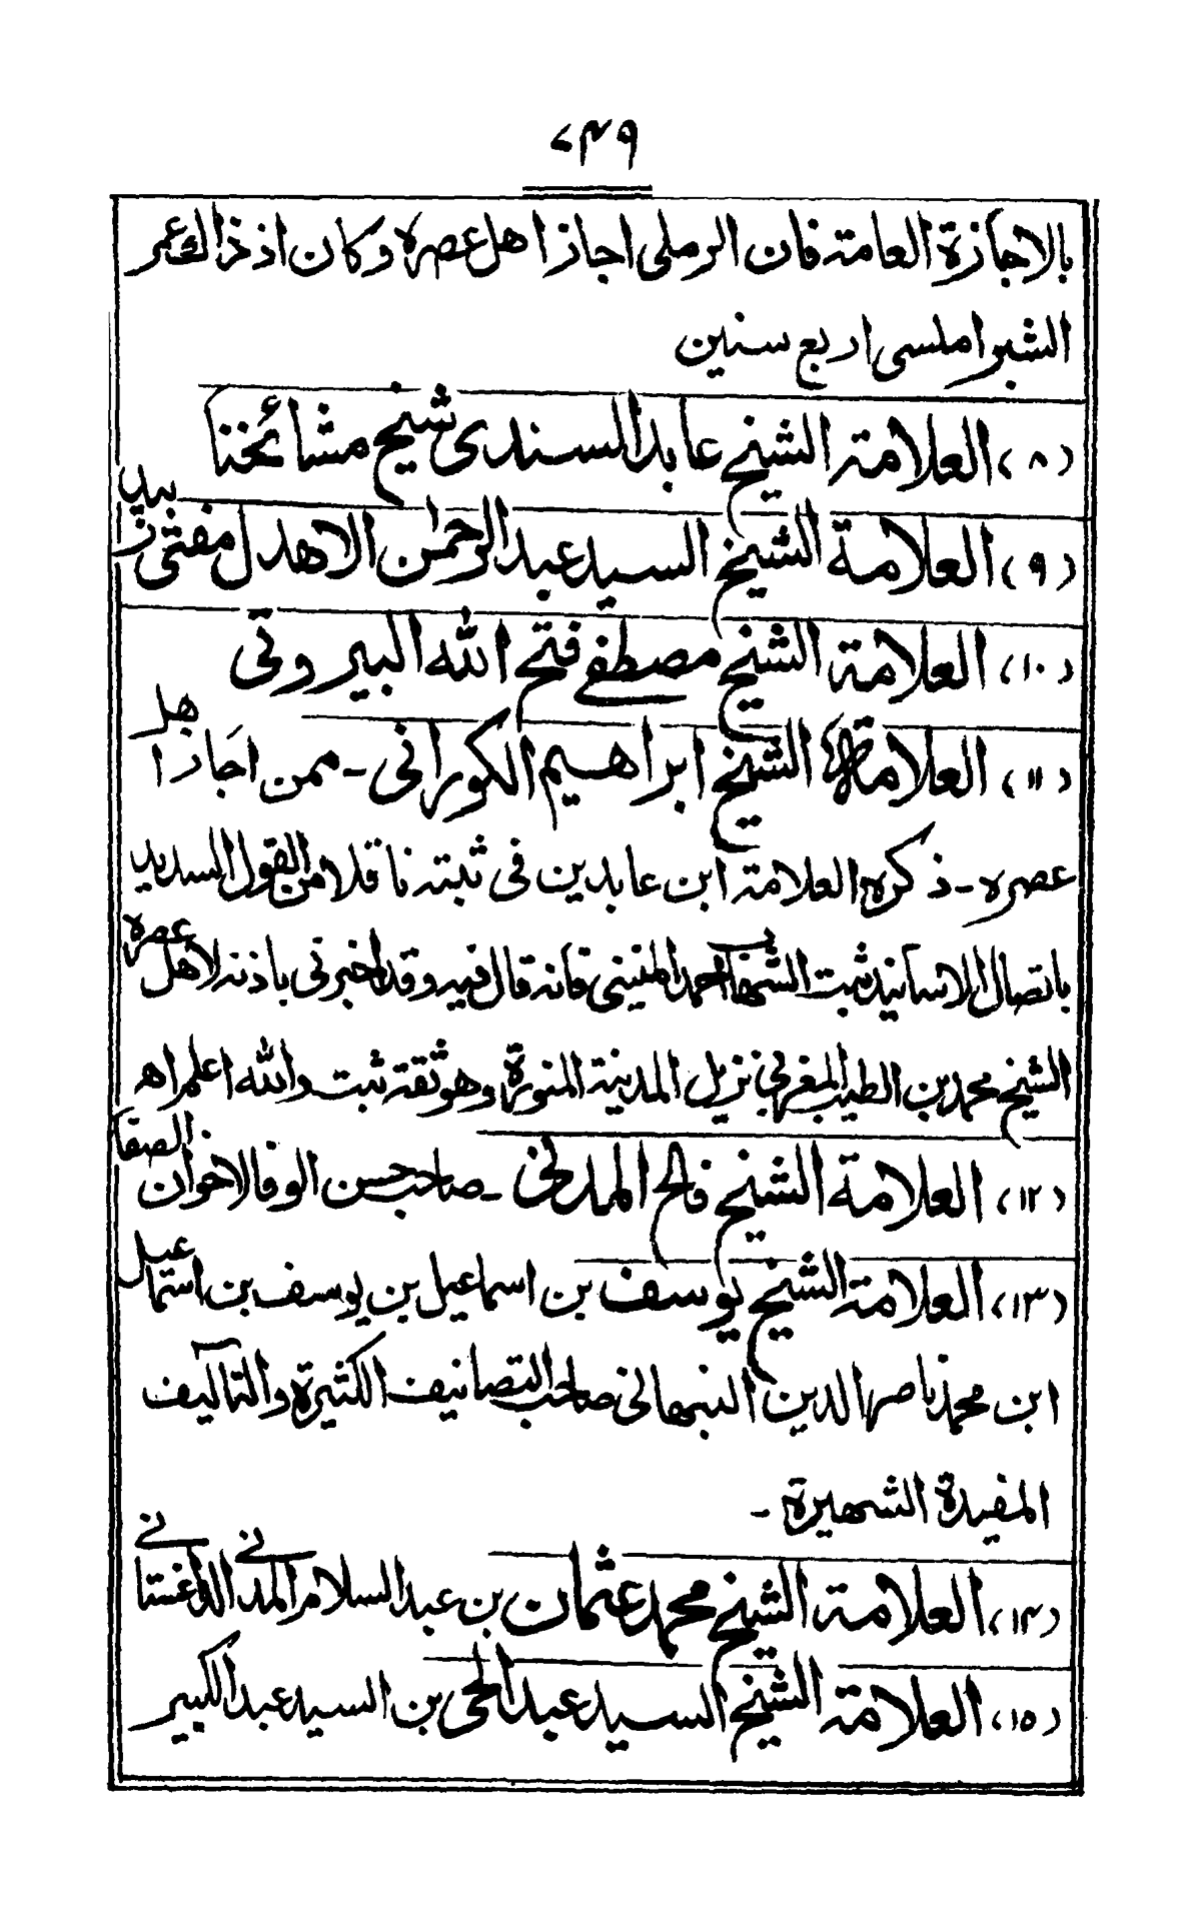 ۷۴۹
بالاجازة العامة فان الرملى اجاز اهل عصره وكان اذ ذالك عمر
الشبراملسى اربع سنين
(۸) العلامة الشيخ عابد السندى شيخ مشائخنا
(۹) العلامة الشيخ السيد عبد الرحمن الاهدل مفتى زبيد
(۱۰) العلامة الشيخ مصطفے فتح الله البيروتى
(۱۱) العلامة الشيخ ابراهيم الكورانى - ممن اجاز اهل
عصره - ذكره العلامة ابن عابدين فى ثبته ناقلا من القول السديد
باتصال الاسانيد ثبت الشهاب احمد المنينى فانه قال فيه وقد اخبرنى باذنه لاهل عصره
الشيخ محمد بن الطيب المغربي نزيل المدينة المنورة وهو ثقة ثبت والله اعلم اھ
(۱۲) العلامة الشيخ فالح المدنى - صاحب حسن الوفا لاخوان الصفا
(۱۳) العلامة الشيخ يوسف بن اسماعيل بن يوسف بن اسماعيل
ابن محمد ناصر الدين النبهانى صاحب التصانيف الكثيرة والتآليف
المفيدة الشهيرة -
(۱۴) العلامة الشيخ محمد عثمان بن عبد السلام المدنى الداغستانى
(۱۵) العلامة الشيخ السيد عبد الحى بن السيد عبد الكبير